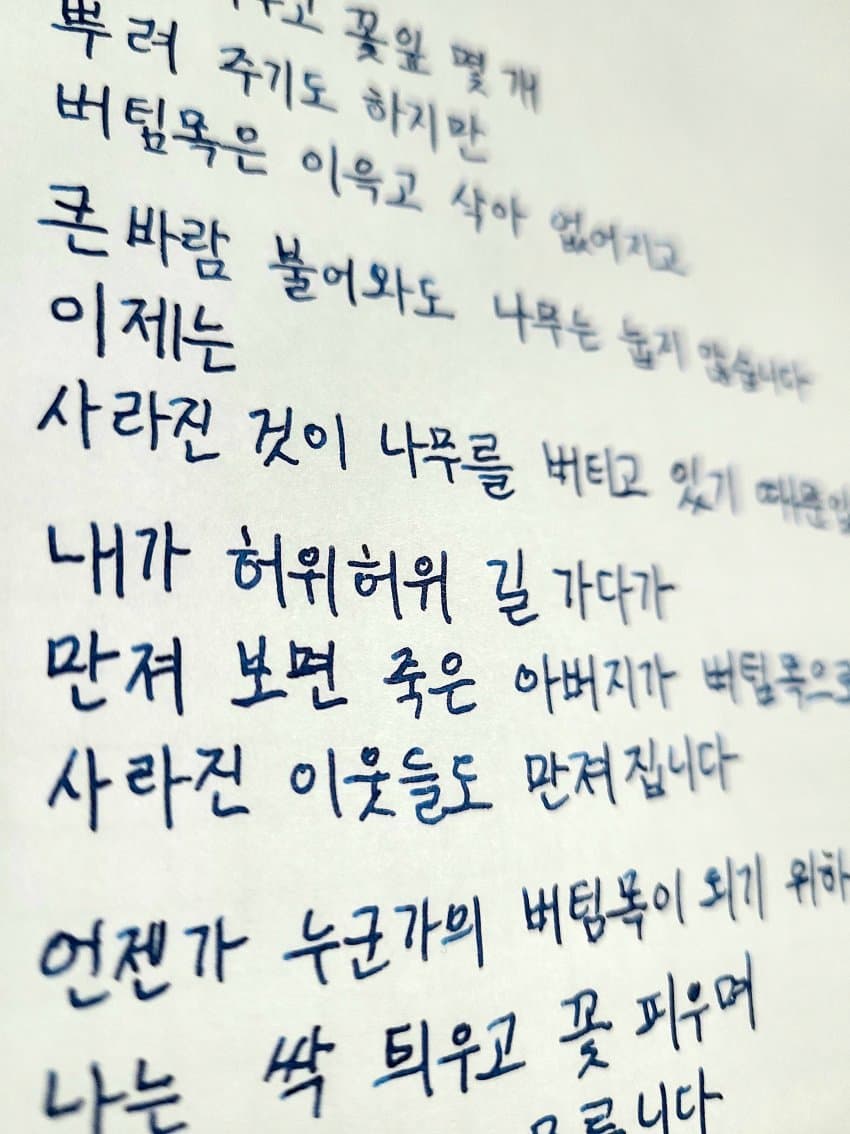 꽃잎 몇 개
뿌려 주기도 하지만
버팀목은 이윽고 삭아 없어지고
큰 바람 불어와도 나무는 눕지 않습니다
이제는
사라진 것이 나무를 버티고 있기
내가 허위허위 길 가다가
만져 보면 죽은 아버지가 버팀목으로
사라진 이웃들도 만져집니다
언젠가 누군가의 버팀목이 되기 위하
나는 싹 틔우고 꽃 피우며